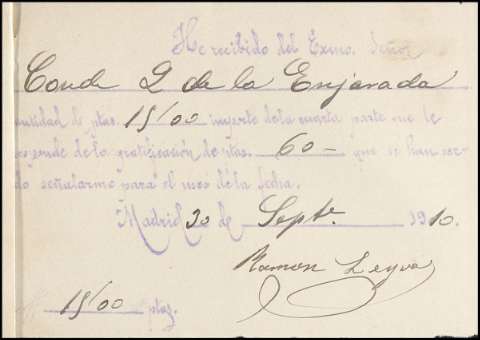 He recibido del Exmo. Señor
Conde D de la Enjarada
cantidad de ptas. 15'00 importe de la cuarta parte que le
de la gratificación de ptas. 60- que se han ser-
do señalarme para el mes de la fecha.
Madrid 30 de Septe. 1910.
Ramon Leyva
15'00 ptas.